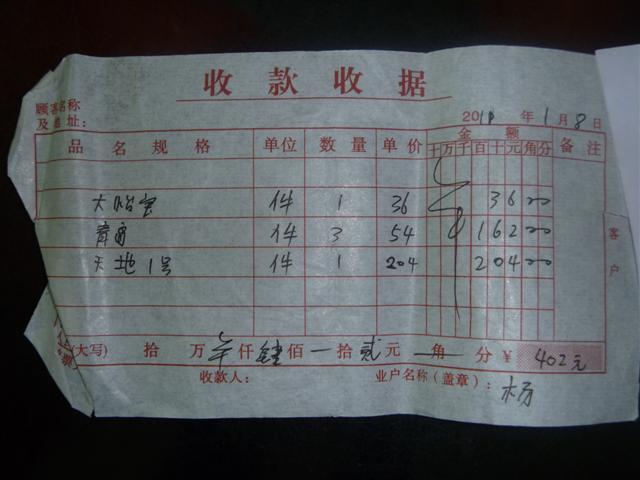 收款收据
顾客名称
及地址：
201 年 1 月 8 日
品名规格 单位 数量 单价 金额 备注
十 万 千 百 十 元 角 分
大怡宝 件 1 36 36 00
件 3 54 162 00
天地1号 件 1 204 204 00
客户
(大写) 拾 万 仟 肆 佰 一 拾 贰 元 角 分 ¥ 402元
收款人： 业户名称（盖章）： 杨